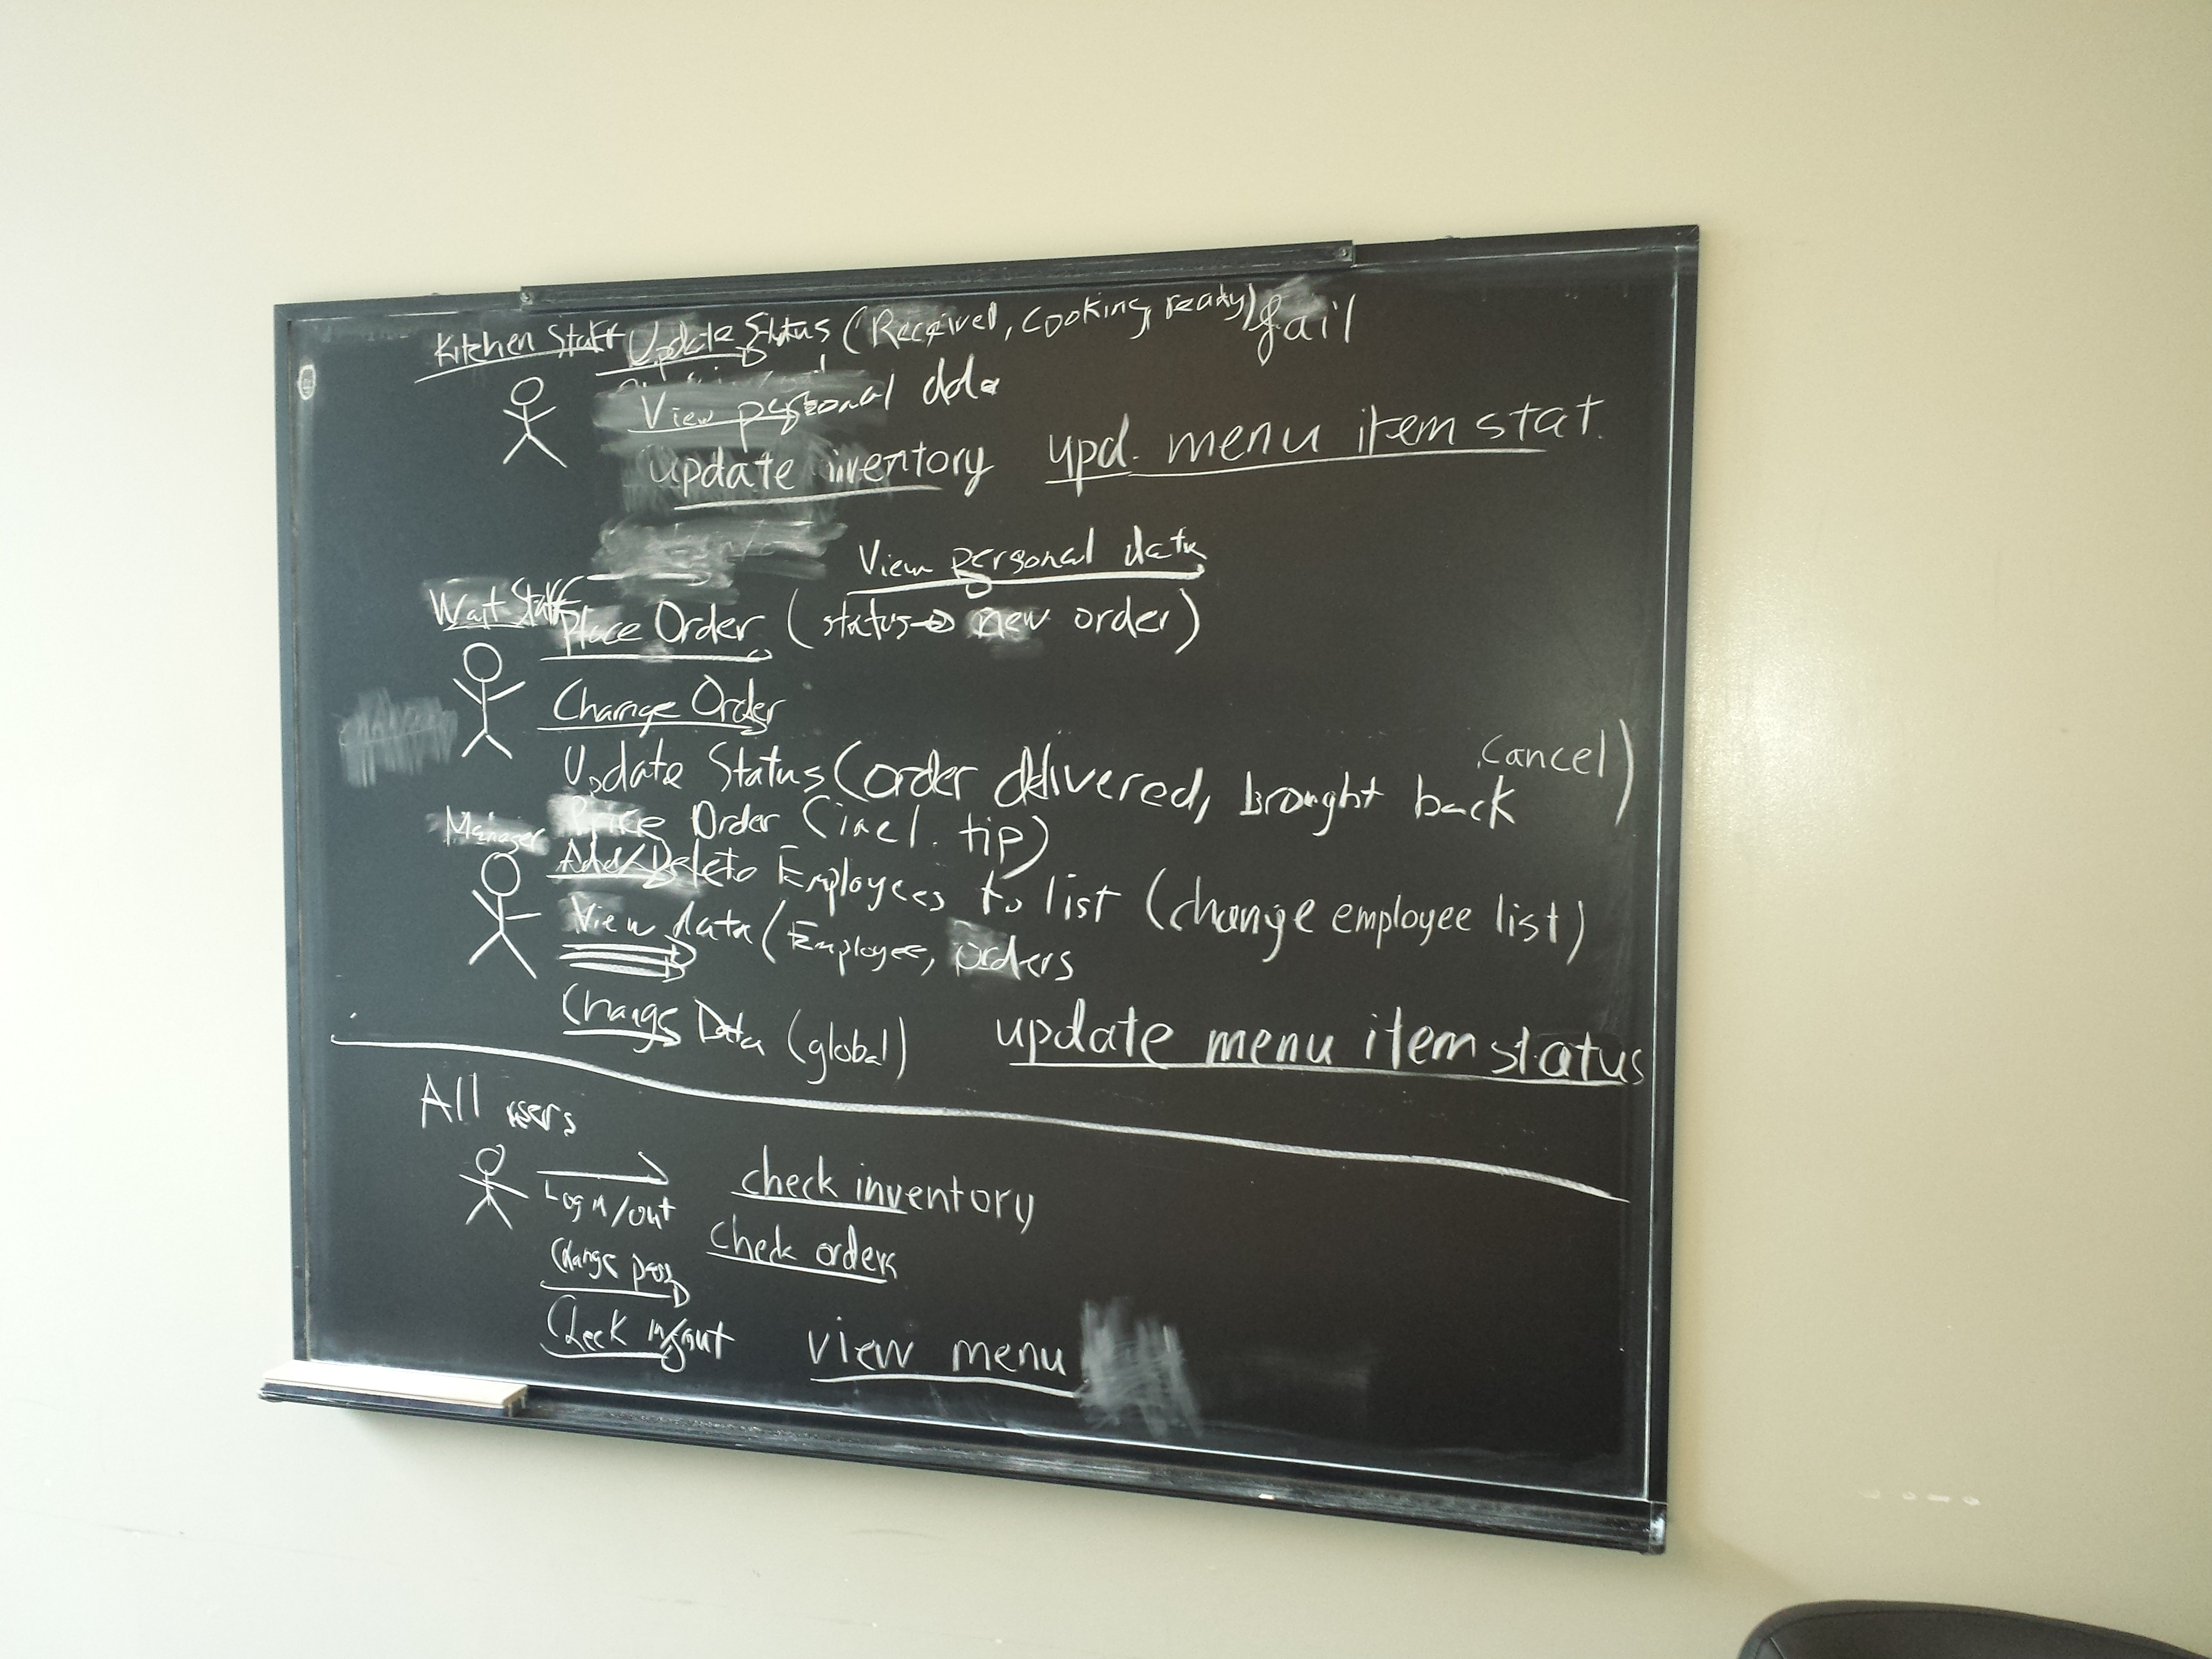 Kitchen Staff Update Status (Received, cooking, ready) fail
View personal data
update inventory upd. menu item stat.
View personal data
Wait Staff Place Order (status→ new order)
Change Order
Update Status (order delivered, brought back cancel)
Price Order (incl. tip)
Manager
Add/Delete Employees to list (change employee list)
View data (Employee, orders
Change Data (global) update menu item status
All users
Log in/out check inventory
Change pass check orders
Check in/out view menu